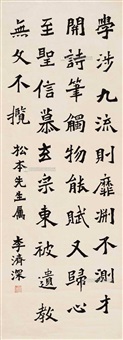 學涉九流則靡淵不測才
開詩筆觸物能賦又歸心
至聖信慕玄宗東被遺教
無文不攬
松本先生属 李濟深